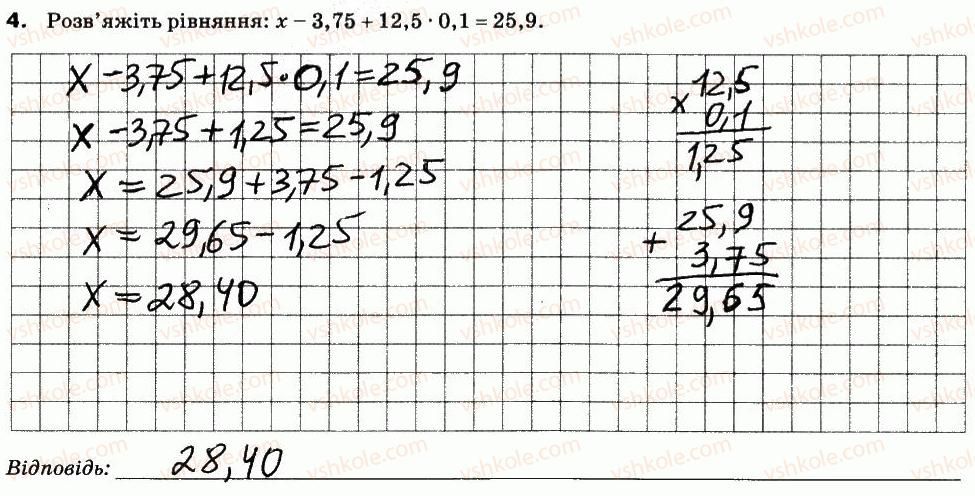 4. Розв’яжіть рівняння: x – 3,75 + 12,5 · 0,1 = 25,9.
x – 3,75 + 12,5 · 0,1 = 25,9
x – 3,75 + 1,25 = 25,9
x = 25,9 + 3,75 – 1,25
x = 29,65 – 1,25
x = 28,40
12,5
x 0,1
1,25
25,9
+ 3,75
29,65
Відповідь: 28,40